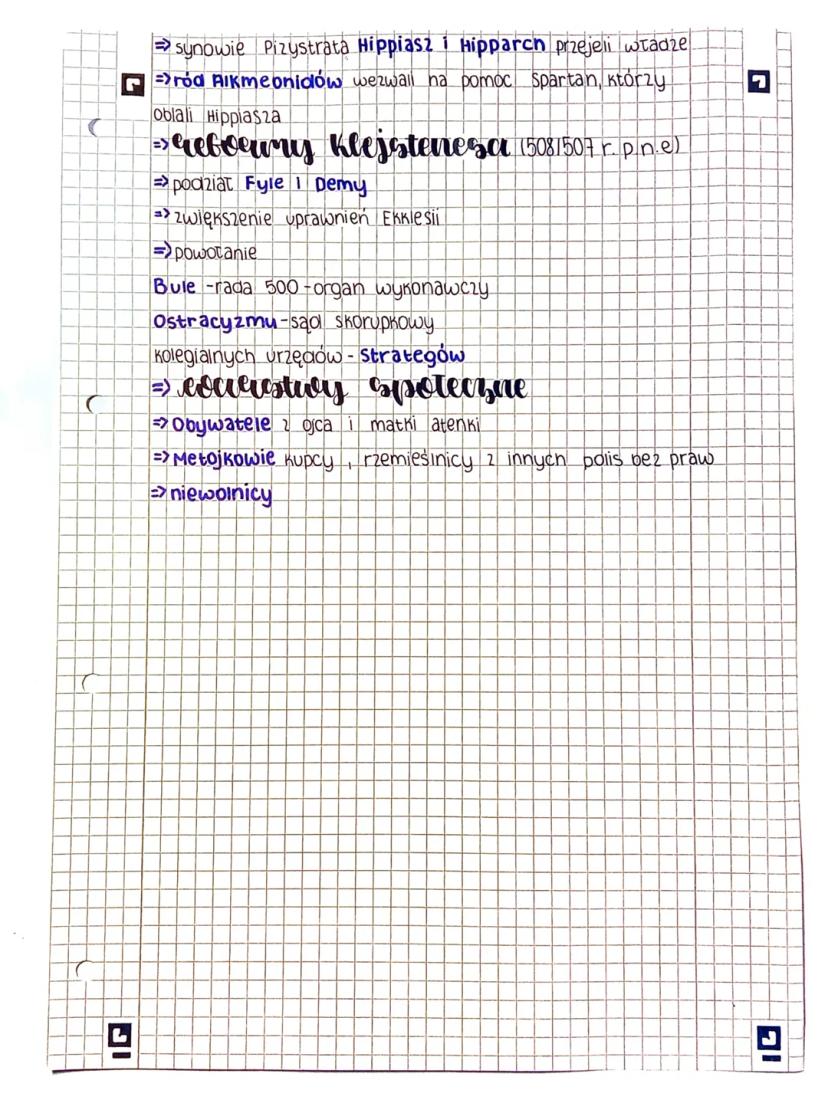 => synowie Pizystrata Hippiasz i Hipparch przejeli władze
=> ród Alkmeonidów wezwali na pomoc Spartan, którzy
oblali Hippiasza
=> reformy Klejstenesa (508/507 r. p.n.e)
=> podział Fyle i Demy
=> zwiększenie uprawnień Ekklesii
=> powołanie
Bule - rada 500 - organ wykonawczy
Ostracyzmu - sąd skorupkowy
kolegialnych urzędów - Strategów
=> warstwy społeczne
=> Obywatele z ojca i matki atenki
=> Metojkowie kupcy, rzemieślnicy z innych polis bez praw
=> niewolnicy